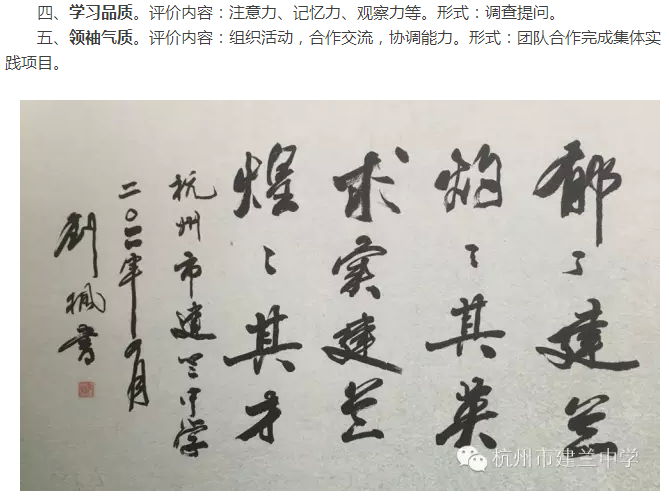 四、学习品质。评价内容：注意力、记忆力、观察力等。形式：调查提问。
五、领袖气质。评价内容：组织活动，合作交流，协调能力。形式：团队合作完成集体实
践项目。
郁々建兰
灼々其英
求实建兰
煌々其才
杭州市建兰中学
二〇一一年九月
刘枫书
杭州市建兰中学